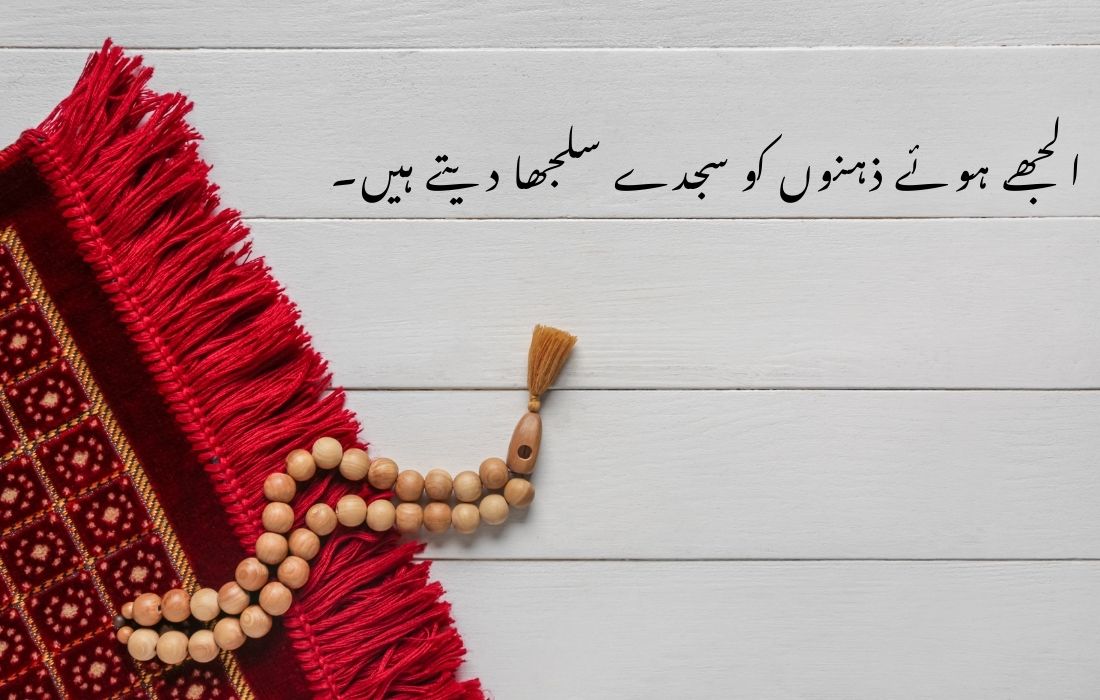 الجھے ہوئے ذہنوں کو سجدے سلجھا دیتے ہیں۔